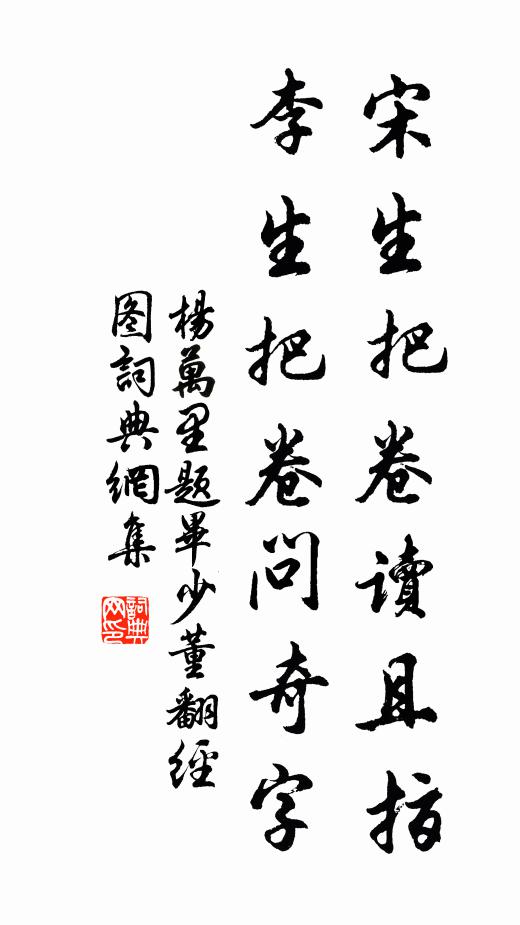 宋生把卷讀且指
李生把卷問奇字
楊萬里題畢少董翻經
图詞典網集
詞典网印